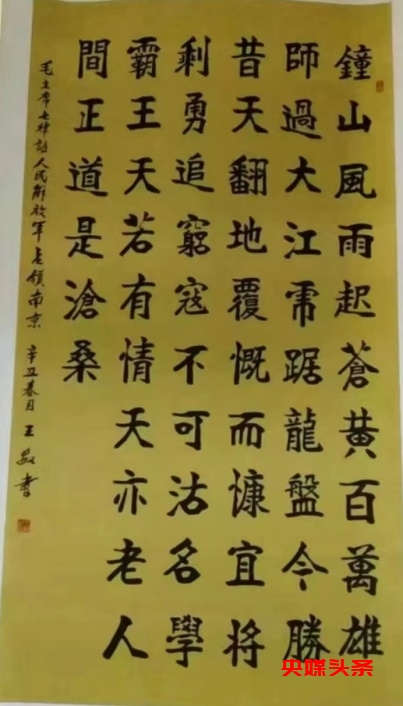 鐘山風雨起蒼黃百萬雄
師過大江虎踞龍盤今勝
昔天翻地覆慨而慷宜將
剩勇追窮寇不可沽名學
霸王天若有情天亦老人
間正道是滄桑
毛主席七律詩人民解放軍占領南京 辛丑春月 王 書
央媒头条